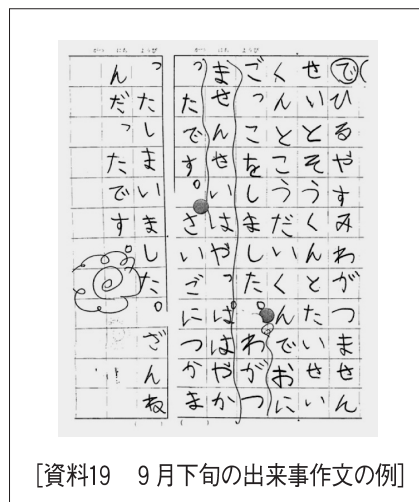 がつ にち ようび
でひるやすみわがつません
せいとそうくんとたいせい
くんとこうだいくんでおに
ごっこをしました。わがつ
ませんせいはやっぱはやか
ったです。さいごにつかま
がつ にち ようび
ったしまいました。ざんね
んだったです。
[資料19 9月下旬の出来事作文の例]